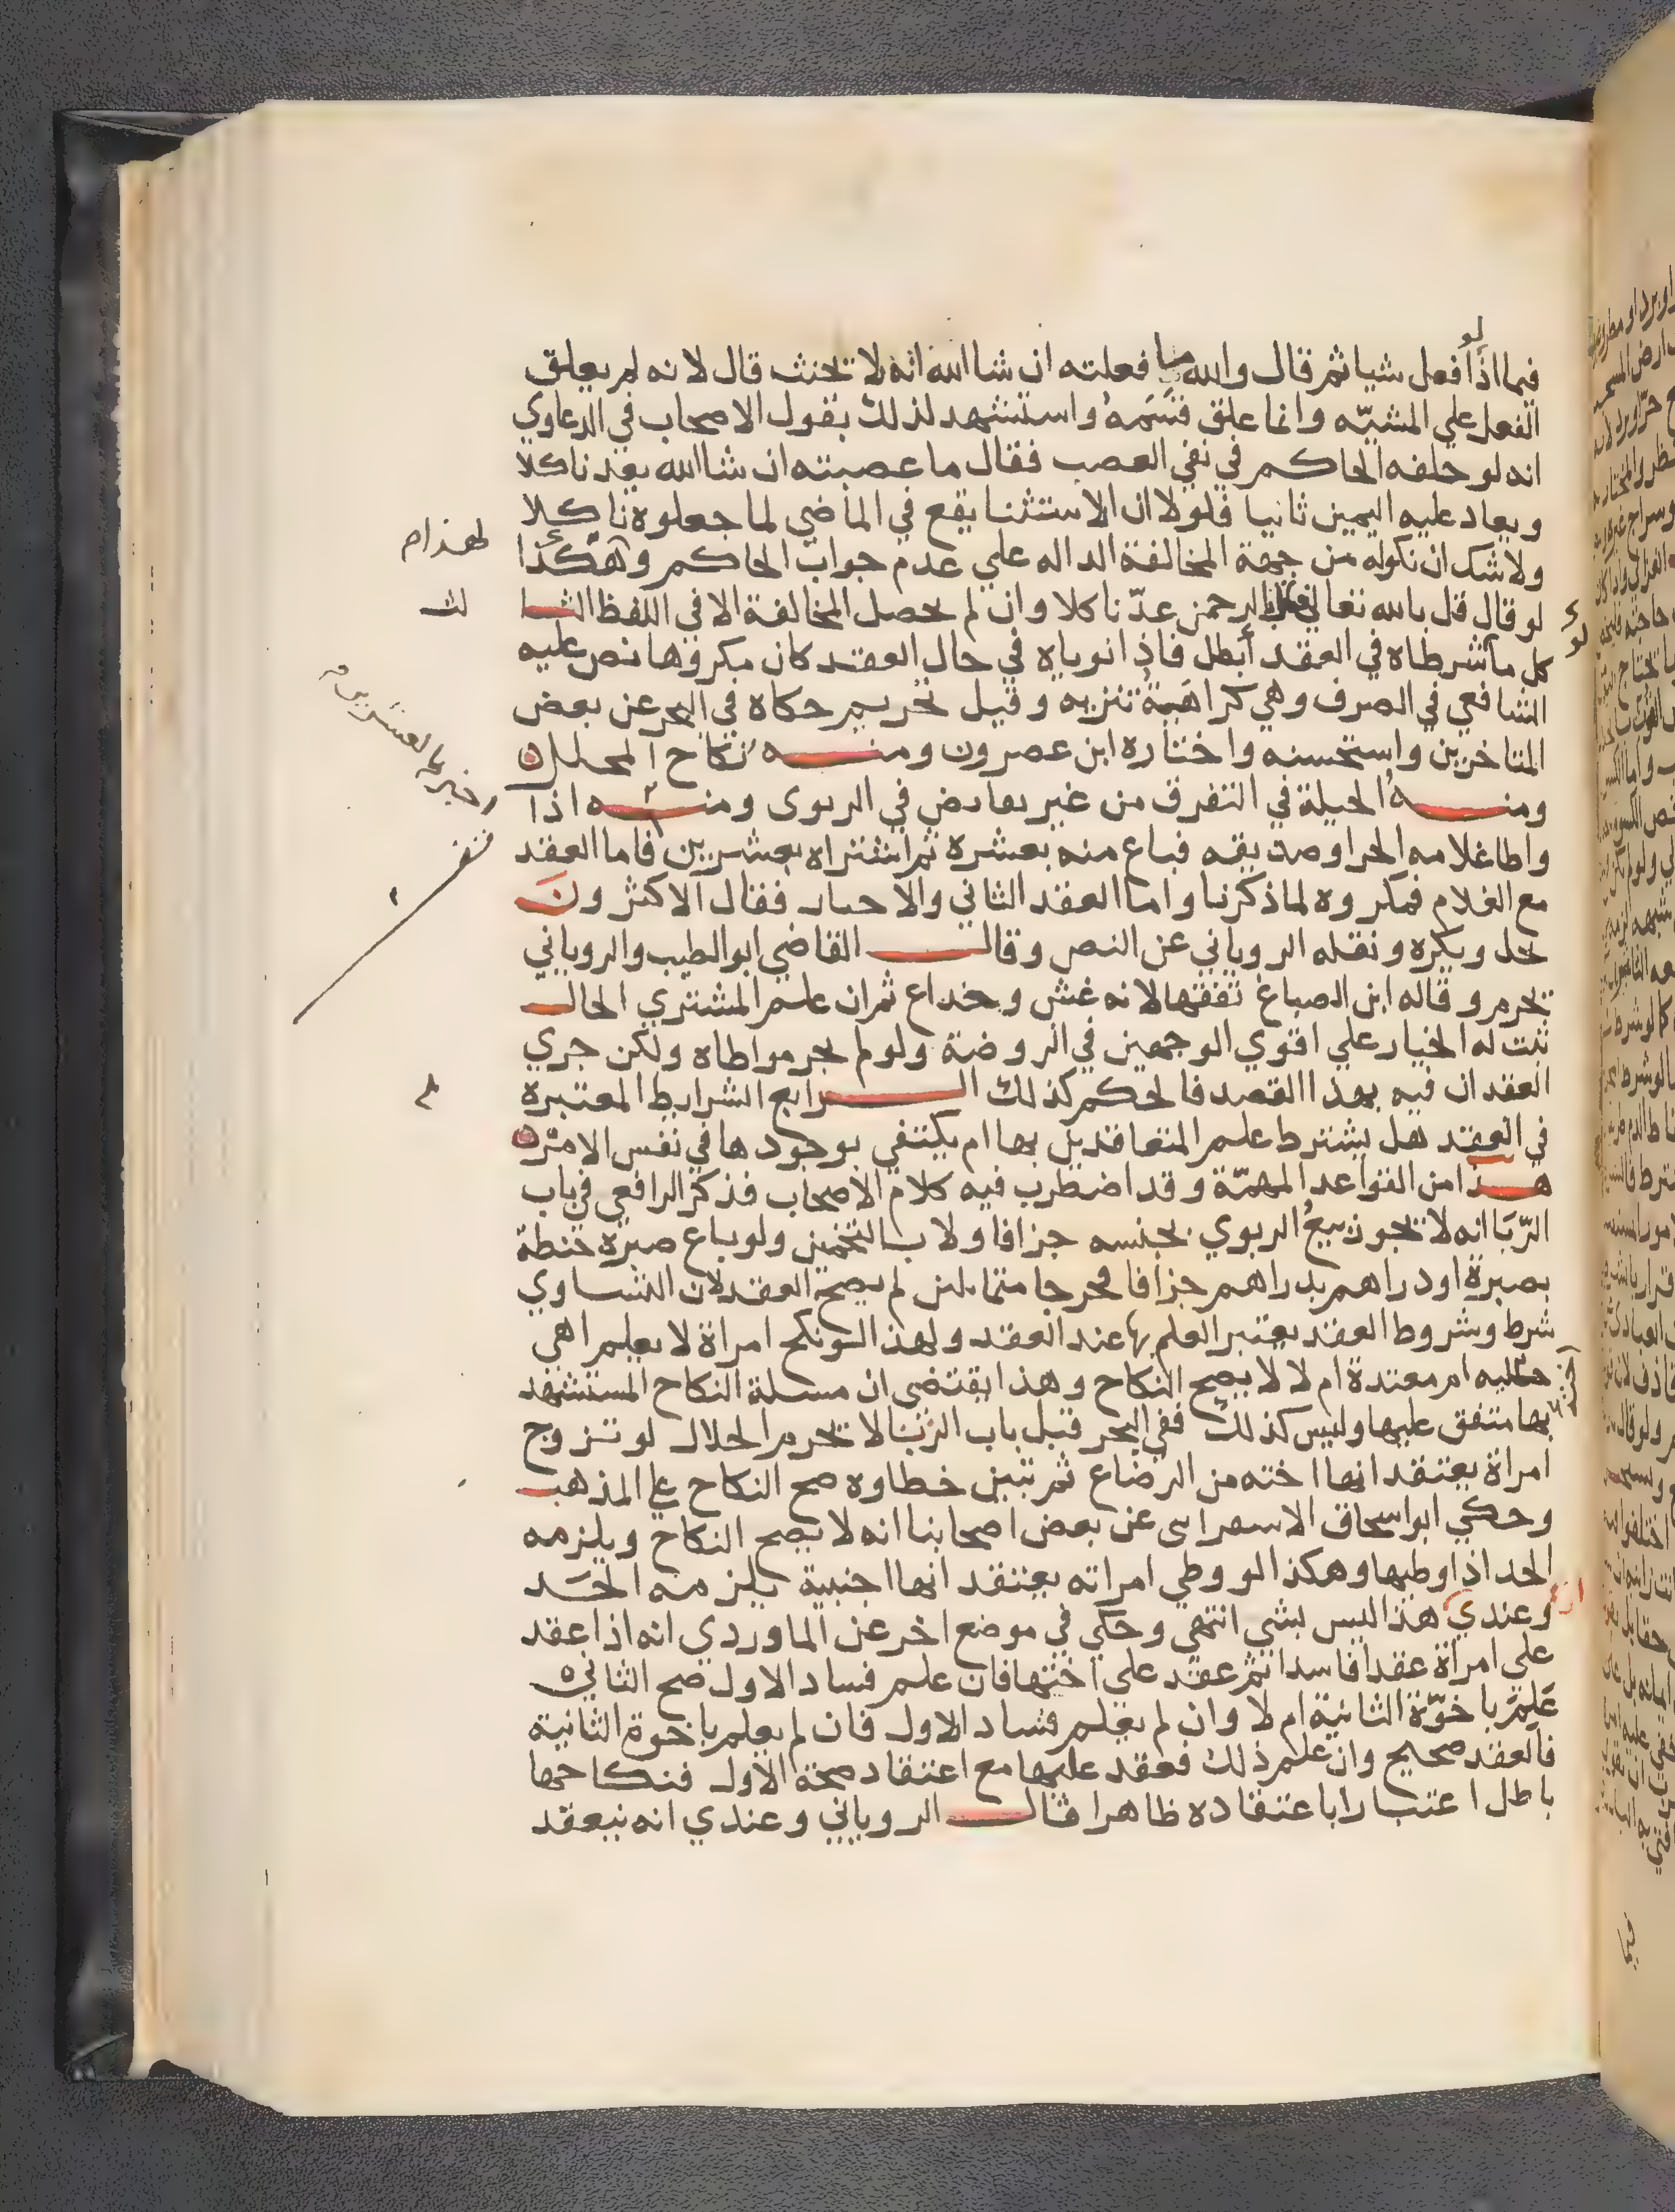 فيما اذا فعل شيا ثم قال والله ما فعلته ان شا الله انه لا تحنث قال لانه لم يعلق
الفعل علي المشيّه وانما علق قسَمَهُ واستشهد لذلك بقول الاصحاب في الدعاوي
انه لو حلفه الحاكم في نفي الغصب فقال ما غصبته ان شا الله يعد ناكلا
ويعاد عليه اليمين ثانيا فلولا ان الاستثنا يقع في الماضي لما جعلوه ناكلا
ولا شك ان نكوله من جهة المخالفة الداله علي عدم جواب الحاكم وهكذا
لو قال قل بالله تعالي فقال بالرحمن عدّ ناكلا وان لم يحصل المخالفة الا في اللفظ الثا
لث
كل ما شرطاه في العقد أبطل فاذا نوياه في حال العقد كان مكروها نص عليه
الشافعي في الصرف وهي كراهَيةُ تنزيه وقيل تحريم حكاه في البحر عن بعض
المتاخرين واستحسنه واختاره ابن عصرون ومنه نكاح المحلل
ومنه الحيلة في التفرق من غير تقابض في الربوي ومنه اذا
واطا غلامه الحر او صديقه فباع منه بعشره ثم اشتراه بعشرين فاما العقد
مع الغلام فمكروه لما ذكرنا واما العقد الثاني والاخبار فقال الاكثرونَ
يحل ويكره ونقله الروياني عن النص وقال القاضي ابو الطيب والروياني
يحرم وقاله ابن الصباغ تفقها لانه غش وخداع ثم ان علم المشتري الحال
ثبت له الخيار علي اقوي الوجهين في الروضة ولو لم يحر مواطاه ولكن جري
العقدان فيه بهذا القصد فالحكم كذلك الرابع الشرايط المعتبرة
في العقد هل يشترط علم المتعاقدين بها ام يكتفي بوجودها في نفس الامر
هذا من القواعد المهمّة وقد اضطرب فيه كلام الاصحاب فذكر الرافعي في باب
الرّبَا انه لا تجوز بيعُ الربوي بجنسه جزافا ولا بالتخمين ولو باع صبرة حنطة
بصبرة او دراهم بدراهم جزافا فخرجا متماثلين لم يصح العقد لان التساوي
شرط وشروط العقد يعتبر العلم بها عند العقد ولهذا لو نكح امراة لا يعلم اهي
ام معتدة ام لا لا يصح النكاح وهذا يقتضي ان مسلة النكاح المستشهد
بها متفق عليها وليس كذلك ففي البحر قبل باب الزنا لا يحرم الحلال لو تزوج
امراة يعتقد انها اخته من الرضاع ثم تبين خطاوه صح النكاح علي المذهب
وحكي ابو اسحاق الاسفراىىى عن بعض اصحابنا انه لا يصح النكاح ويلزمه
الحد اذا وطيها وهكذا لو وطي امراته يعتقد انها اجنبية يلزمه الحَد
وعندي هذا ليس بشي انتهي وحكي في موضع اخر عن الماوردي انه اذا عقد
علي امراة عقدا فاسدا ثم عقد علي اختها فان علم فساد الاول صح الثاني
عَلِمَ باخوّة الثانية ام لا وان لم يعلم فساد الاول فان لم يعلم باخوة الثانية
فالعقد صحيح وان علم ذلك فعقد عليها مع اعتقاد صحة الاول فنكاحها
باطل اعتبارا باعتقاده ظاهرا قال الروياني وعندي انه ينعقد